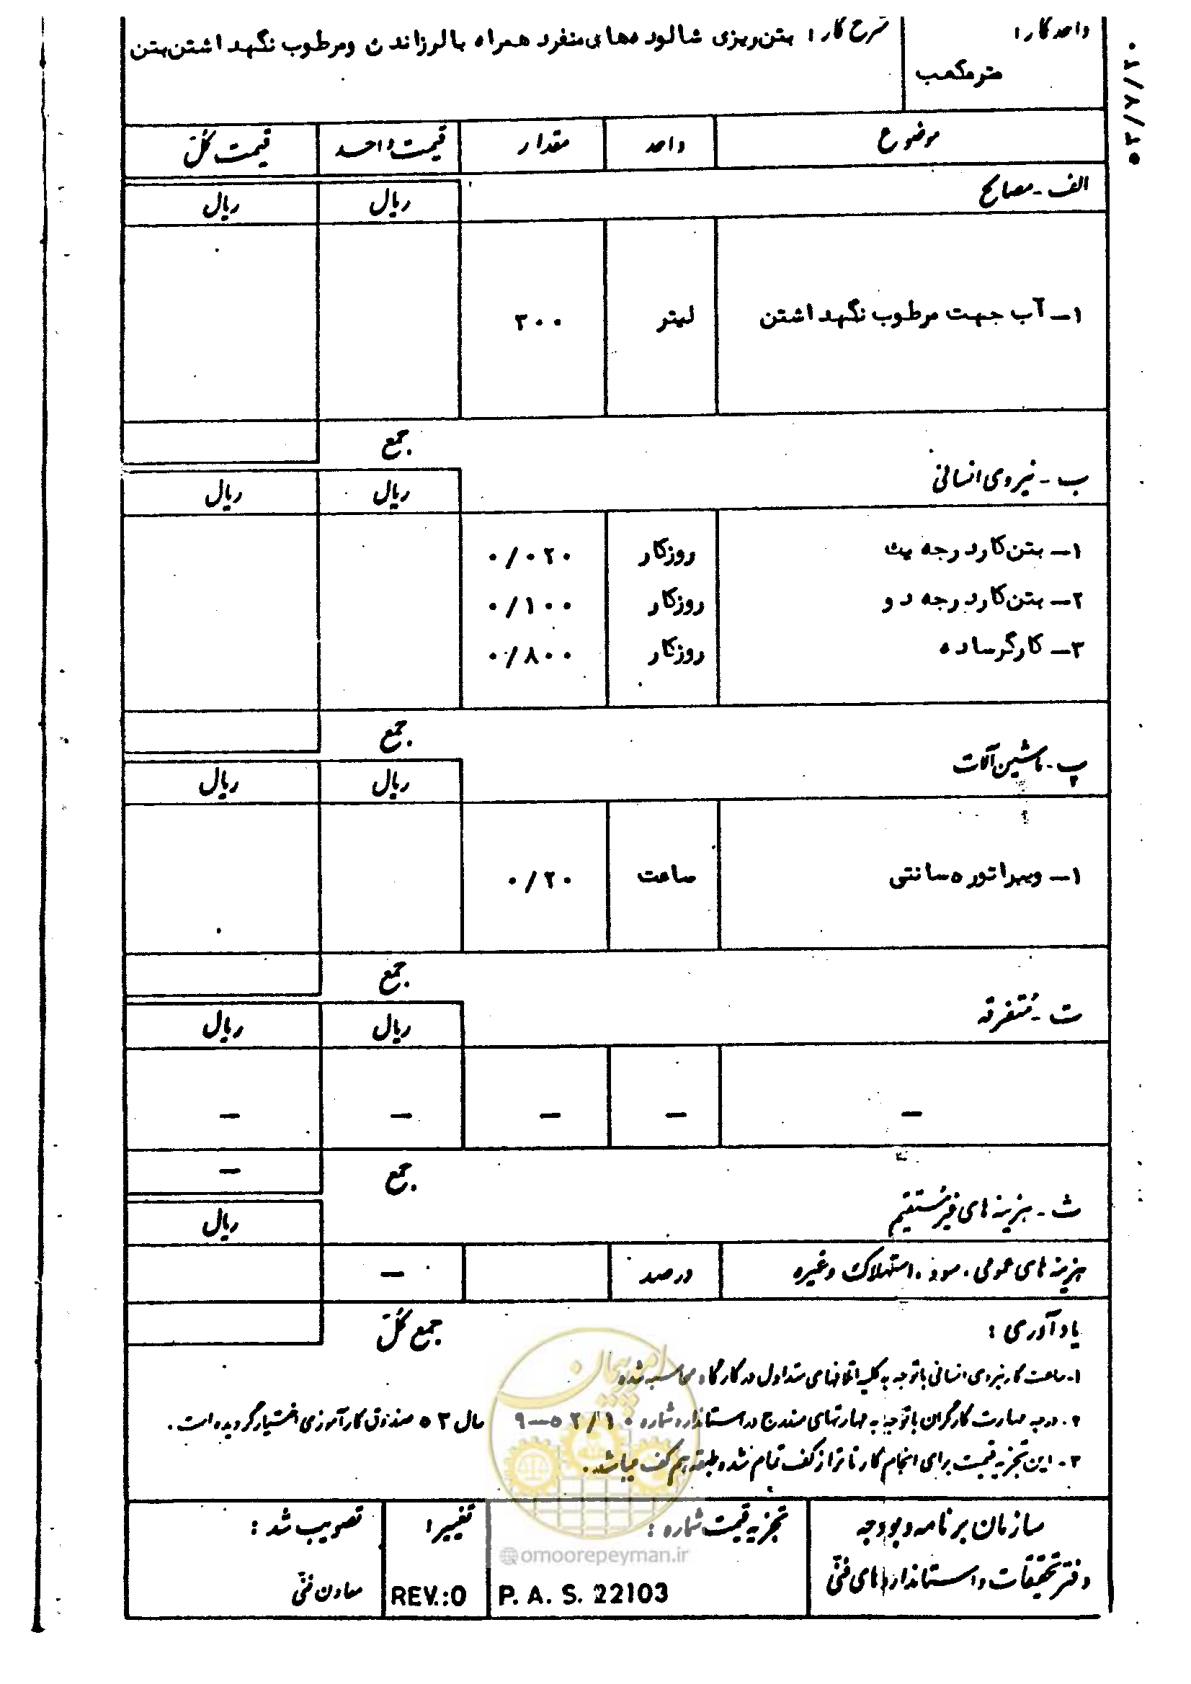 واحد کار: شرح کار: بتن‌ریزی شالوده‌های منفرد همراه با لرزاندن ومرطوب نگهداشتن بتن
مترمکعب
۵۳/۷/۲۰
موضوع واحد مقدار قیمت واحد قیمت کل
الف - مصالح ریال ریال
۱- آب جهت مرطوب نگهداشتن لیتر ۲۰۰
جمع
ب - نیروی انسانی ریال ریال
۱- بتن‌کار درجه یک روزکار ۰/۰۲۰
۲- بتن‌کار درجه دو روزکار ۰/۱۰۰
۳- کارگر ساده روزکار ۰/۸۰۰
جمع
پ - ماشین آلات ریال ریال
۱- ویبراتور ۵ سانتی ساعت ۰/۲۰
جمع
ت - متفرقه ریال ریال
— — — — —
جمع —
ث - هزینه های غیرمستقیم ریال
هزینه های عمومی ، سود ، استهلاک وغیره درصد —
یادآوری : جمع کل
۱- ساعت کار نیروی انسانی باتوجه به کلیه اتلافهای متداول در کارگاه محاسبه شده
۲- درجه مهارت کارگران باتوجه به مهارتهای مندرج در استاندارد شماره ۹—۵۲/۱۰ سال ۵۲ صندوق کارآموزی اختیار گردیده است .
۳- این تجزیه قیمت برای انجام کار تا تراز کف تمام شده طبقه هم کف میباشد .
سازمان برنامه و بودجه تجزیه قیمت شماره : تغییر : تصویب شد :
دفتر تحقیقات و استانداردهای فنی P. A. S. 22103 REV.:0 معاون فنی
امور پیمان
@omoorepeyman.ir